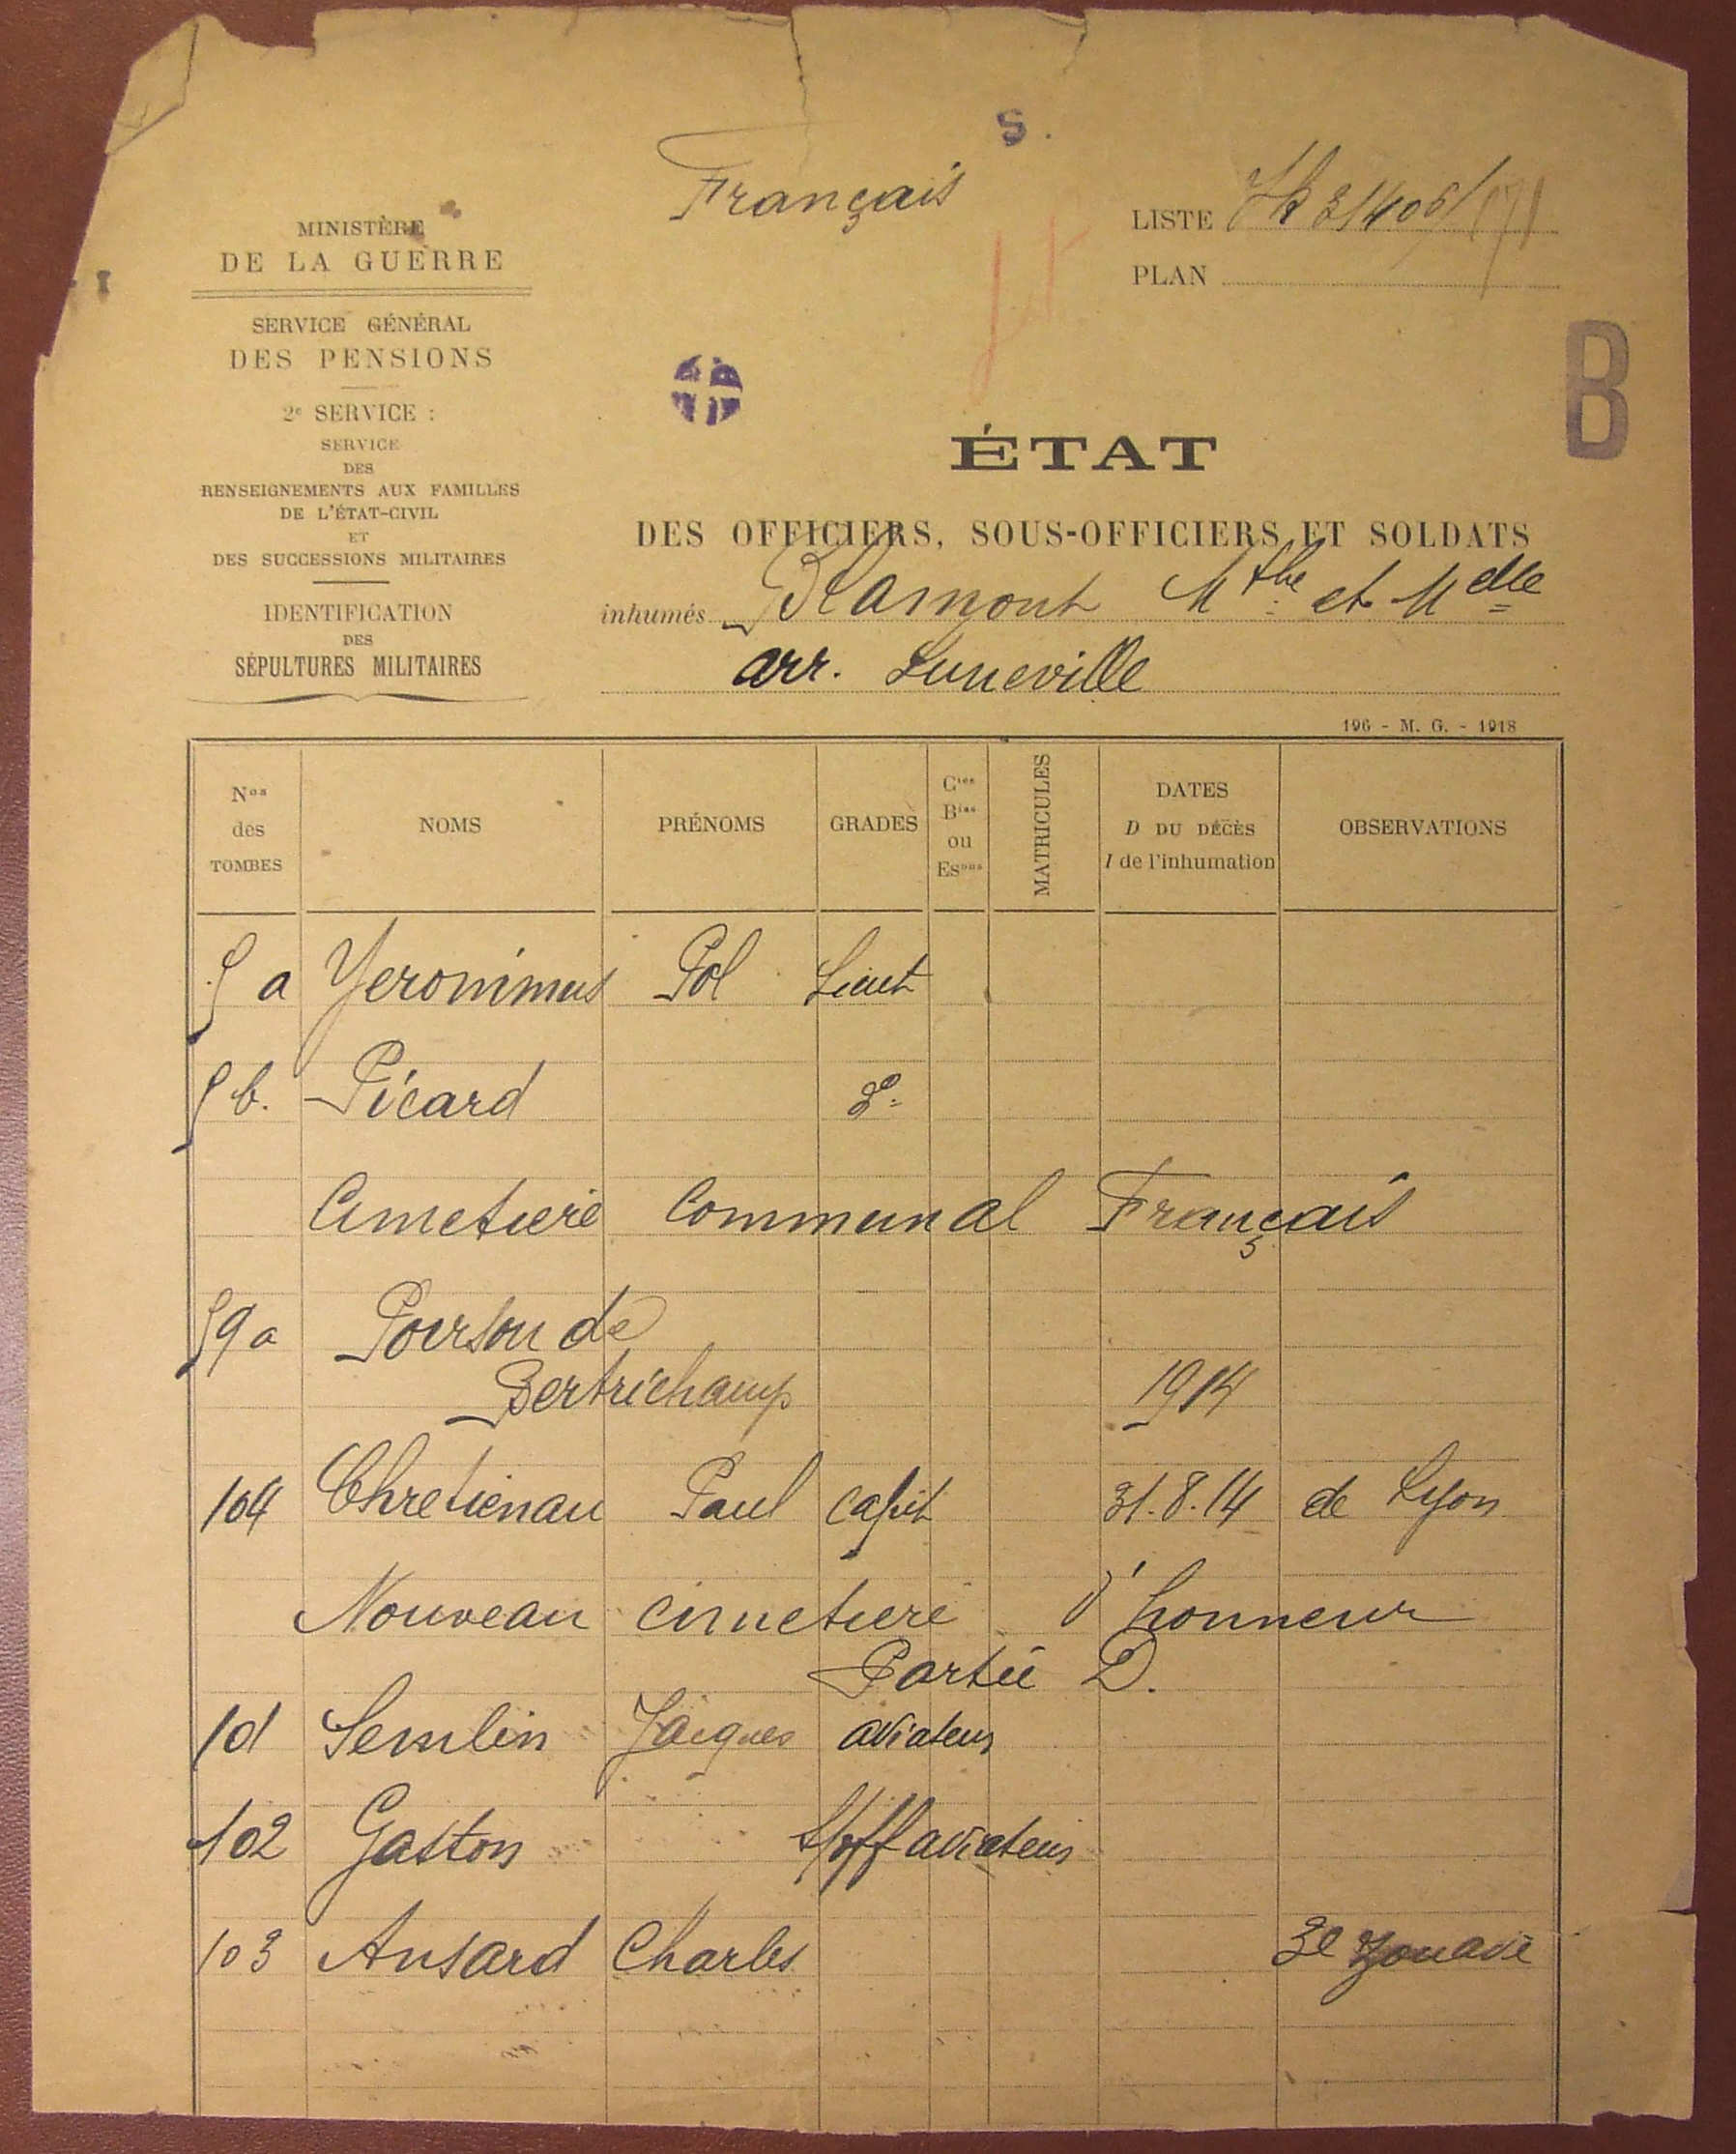 S.
Français
LISTE
PLAN
MINISTÈRE
DE LA GUERRE
SERVICE GÉNÉRAL
DES PENSIONS
2e SERVICE :
SERVICE
DES
RENSEIGNEMENTS AUX FAMILLES
DE L'ÉTAT-CIVIL
ET
DES SUCCESSIONS MILITAIRES
IDENTIFICATION
DES
SÉPULTURES MILITAIRES
B
ÉTAT
DES OFFICIERS, SOUS-OFFICIERS ET SOLDATS
inhumés Blamont Mthe et Melle
arr. Luneville
196 - M. G. - 1918
Nos des TOMBES NOMS PRÉNOMS GRADES Cies Bies ou Esons MATRICULES DATES D DU DÉCÈS I de l'inhumation OBSERVATIONS
a Yeronimus Pol Lieut
b. Picard
Cimetiere Communal Français
9a Poirson de
Bertrichamp 1914
104 Chretienau Paul capit 31.8.14 de Lyon
Nouveau cimetiere d'honneur
Partie D.
1d Semlin Jacques aviateur
102 Gaston S/off aviateur
103 Ansard Charles 3e Zouave